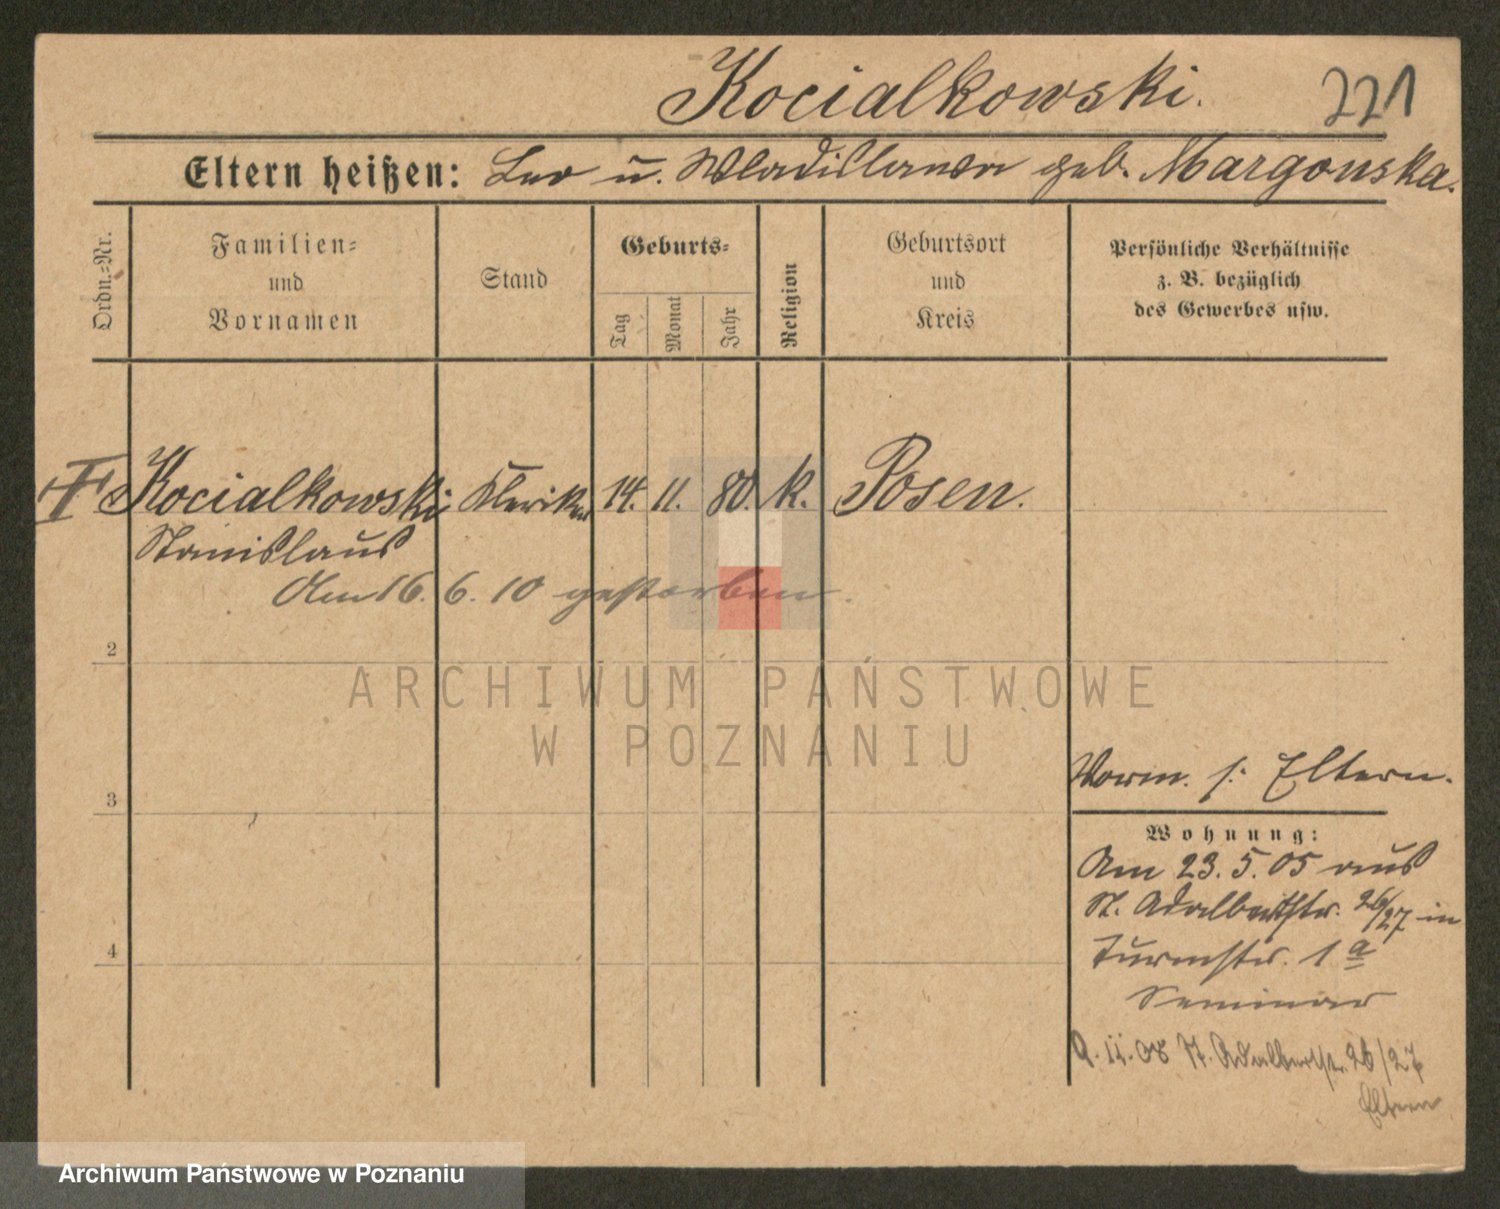 Kocialkowski. 221
Eltern heißen: Leo u. Wladislawa geb. Margonska.
Ordn.=Nr.
Familien=
und
Vornamen
Stand
Geburts=
Tag
Monat
Jahr
Religion
Geburtsort
und
Kreis
Persönliche Verhältnisse
z. B. bezüglich
des Gewerbes usw.
Kocialkowski Kleriker 14. 11. 80. k. Posen.
Stanislaus
Am 16. 6. 10 gestorben.
2
ARCHIWUM PAŃSTWOWE
W POZNANIU
Vorm. s. Eltern.
3
Wohnung:
Am 23. 5. 05 aus
St. Adalbertstr. 26/27 in
4
Turmstr. 1 a
Seminar
9. 11. 08 St. Adalbertstr. 26/27
Eltern
Archiwum Państwowe w Poznaniu